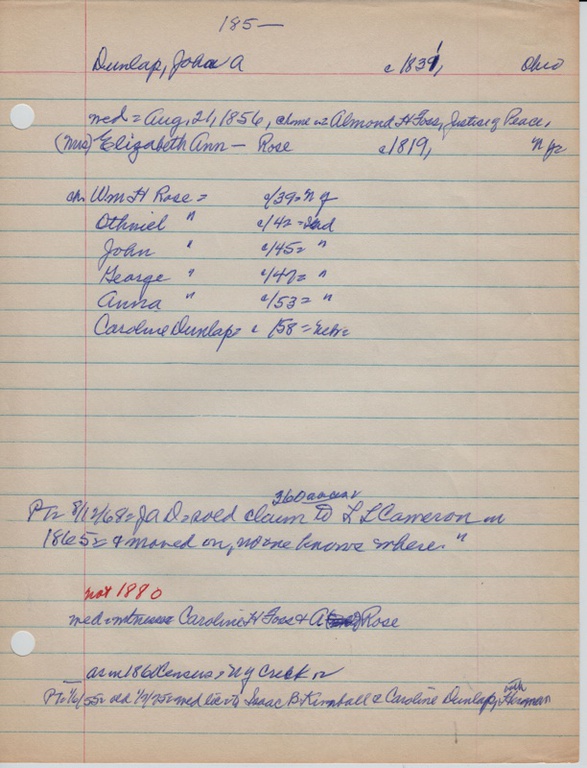 185—
Dunlap, John A c 1831, Ohio
med = Aug. 21, 1856, Almond H Foss, Justice of Peace,
(Mrs) Elizabeth Ann — Rose c 1819, n y
ch. Wm H Rose = c/39 = n y
Othniel " c/42 = Ind
John " c/45 = "
George " c/47 = "
Anna " c/53 = "
Caroline Dunlap = c /58 = Nebr
360 acres
8/12/68 = J A D = sold claim to L L Cameron in
1865 = & moved on, no one knows where. "
not 1880
med = witness = Caroline H Foss & A Rose
as in 1860 census =
old med lic to Isaac B Kimball & Caroline Dunlap, with